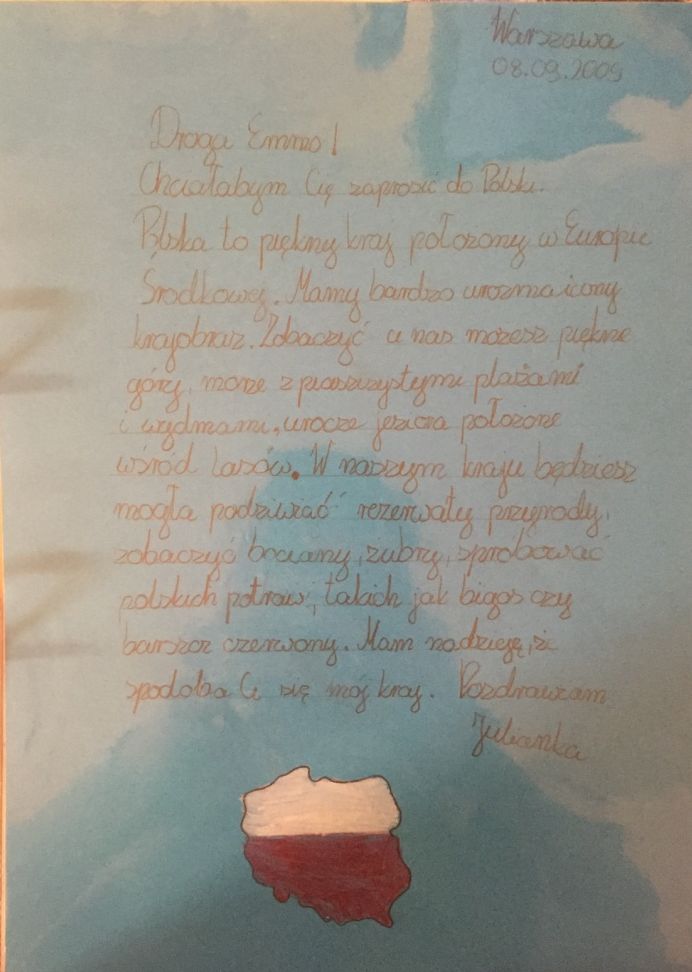 Warszawa
08.09.2009
Droga Emmo!
Chciałabym Cię zaprosić do Polski.
Polska to piękny kraj położony w Europie
Środkowej. Mamy bardzo urozmaicony
krajobraz. Zobaczyć u nas możesz piękne
góry, morze z piaszczystymi plażami
i wydmami, urocze jeziora położone
wśród lasów. W naszym kraju będziesz
mogła podziwiać rezerwaty przyrody,
zobaczyć bociany, żubry, spróbować
polskich potraw, takich jak bigos czy
barszcz czerwony. Mam nadzieję, że
spodoba Ci się mój kraj. Pozdrawiam
Julianka